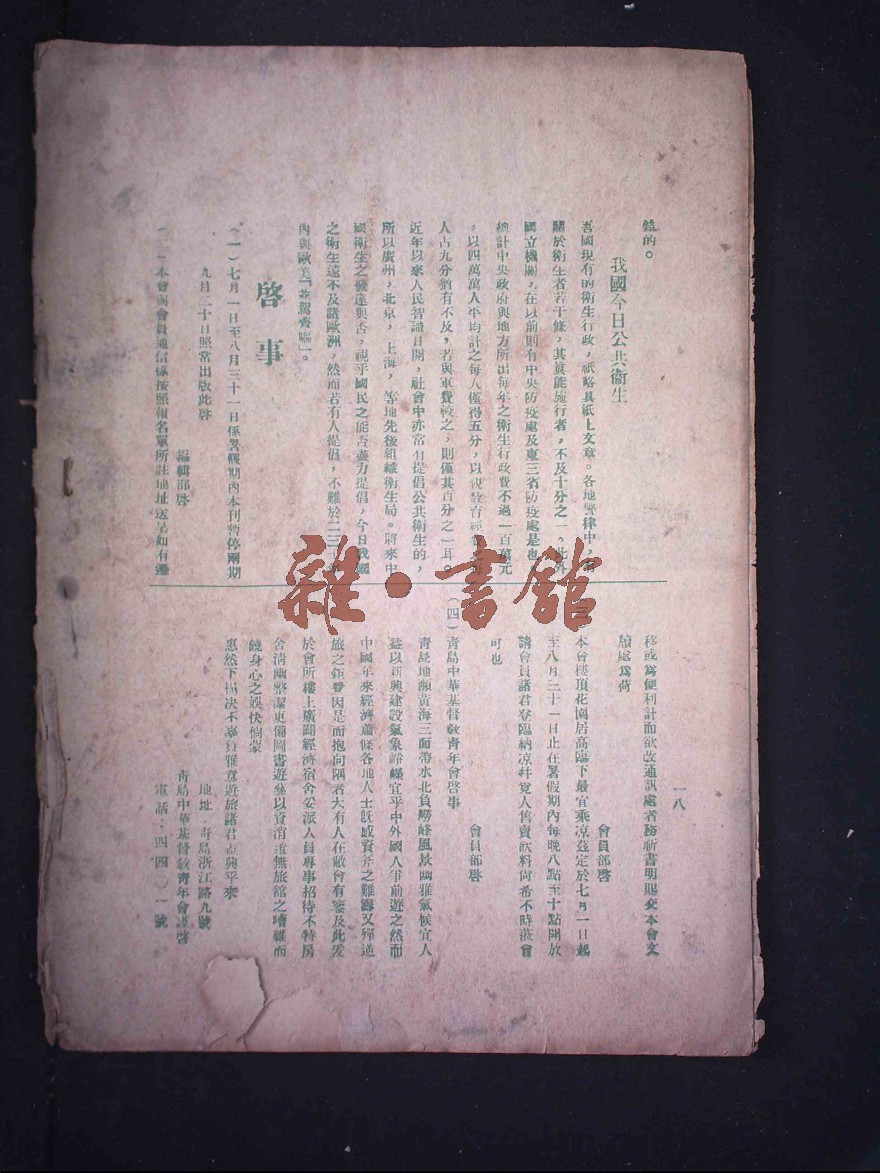 鎮的。
我國今日公共衛生
吾國現有的衛生行政，祇略具紙上文章。各地警律中，
關於衛生者若干條，其眞能施行者，不及十分之一。此外
國立機關，在以前則有中央防疫處及東三省防疫處是也
總計中央政府與地方所出每年之衛生行政費不過一百萬元
，以四萬萬人平均計之每人僅得五分，以視教育經
人占九分猶有不及，若與軍費較之，則僅其百分之一耳。
近年以來人民智識日開，社會中亦常有提倡公共衛生的，
所以廣州，北京，上海，等地先後組織衛生局。將來中
國衛生之發達與否，視乎國民之能否盡力提倡，今日我國
之衛生遠不及諸歐洲，然而若有人提倡，不難於二三十
內與歐美『並駕齊驅』。
啓事
（一）七月一日至八月三十一日係暑假期內本刊暫停兩期
九月二十日照常出版此啓
編輯部啓
（二）本會與會員通信係按照報名單所註地址送呈如有遷
移或爲便利計而欲改通訊處者務祈書明賜交本會文
牘處爲荷
會員部啓
本會樓頂花園居高臨下最宜乘凉茲定於七月一日起
至八月三十一日止在暑假期內每晚八點至十點開放
請會員諸君登臨納凉幷覓人售賣飲料尙希不時蒞會
可也
會員部啓
（四）青島中華基督敎靑年會啓事
靑島地瀕黃海三面帶水北負嶗峰風景幽雅氣候宜人
益以新興建設氣象崢嶸宜乎中外國人爭前遊之然而
中國年來經濟蕭條各地人士旣感資斧之難籌又殫逆
旅之鉅費因是而抱向隅者大有人在敝會有鑒及此爰
於會所樓上廣闢經濟宿舍妥派人員專事招待不特房
舍淸幽潔更備圖書遊藝以資消遣無旅舘之嘈雜而
饒身心之娛快倘蒙
惠然下榻決不辜負雅意遊旅諸君盍興乎來
地址　靑島浙江路九號
電話：四四〇一號
靑島中華基督敎靑年會謹啓
一八
雜·書館